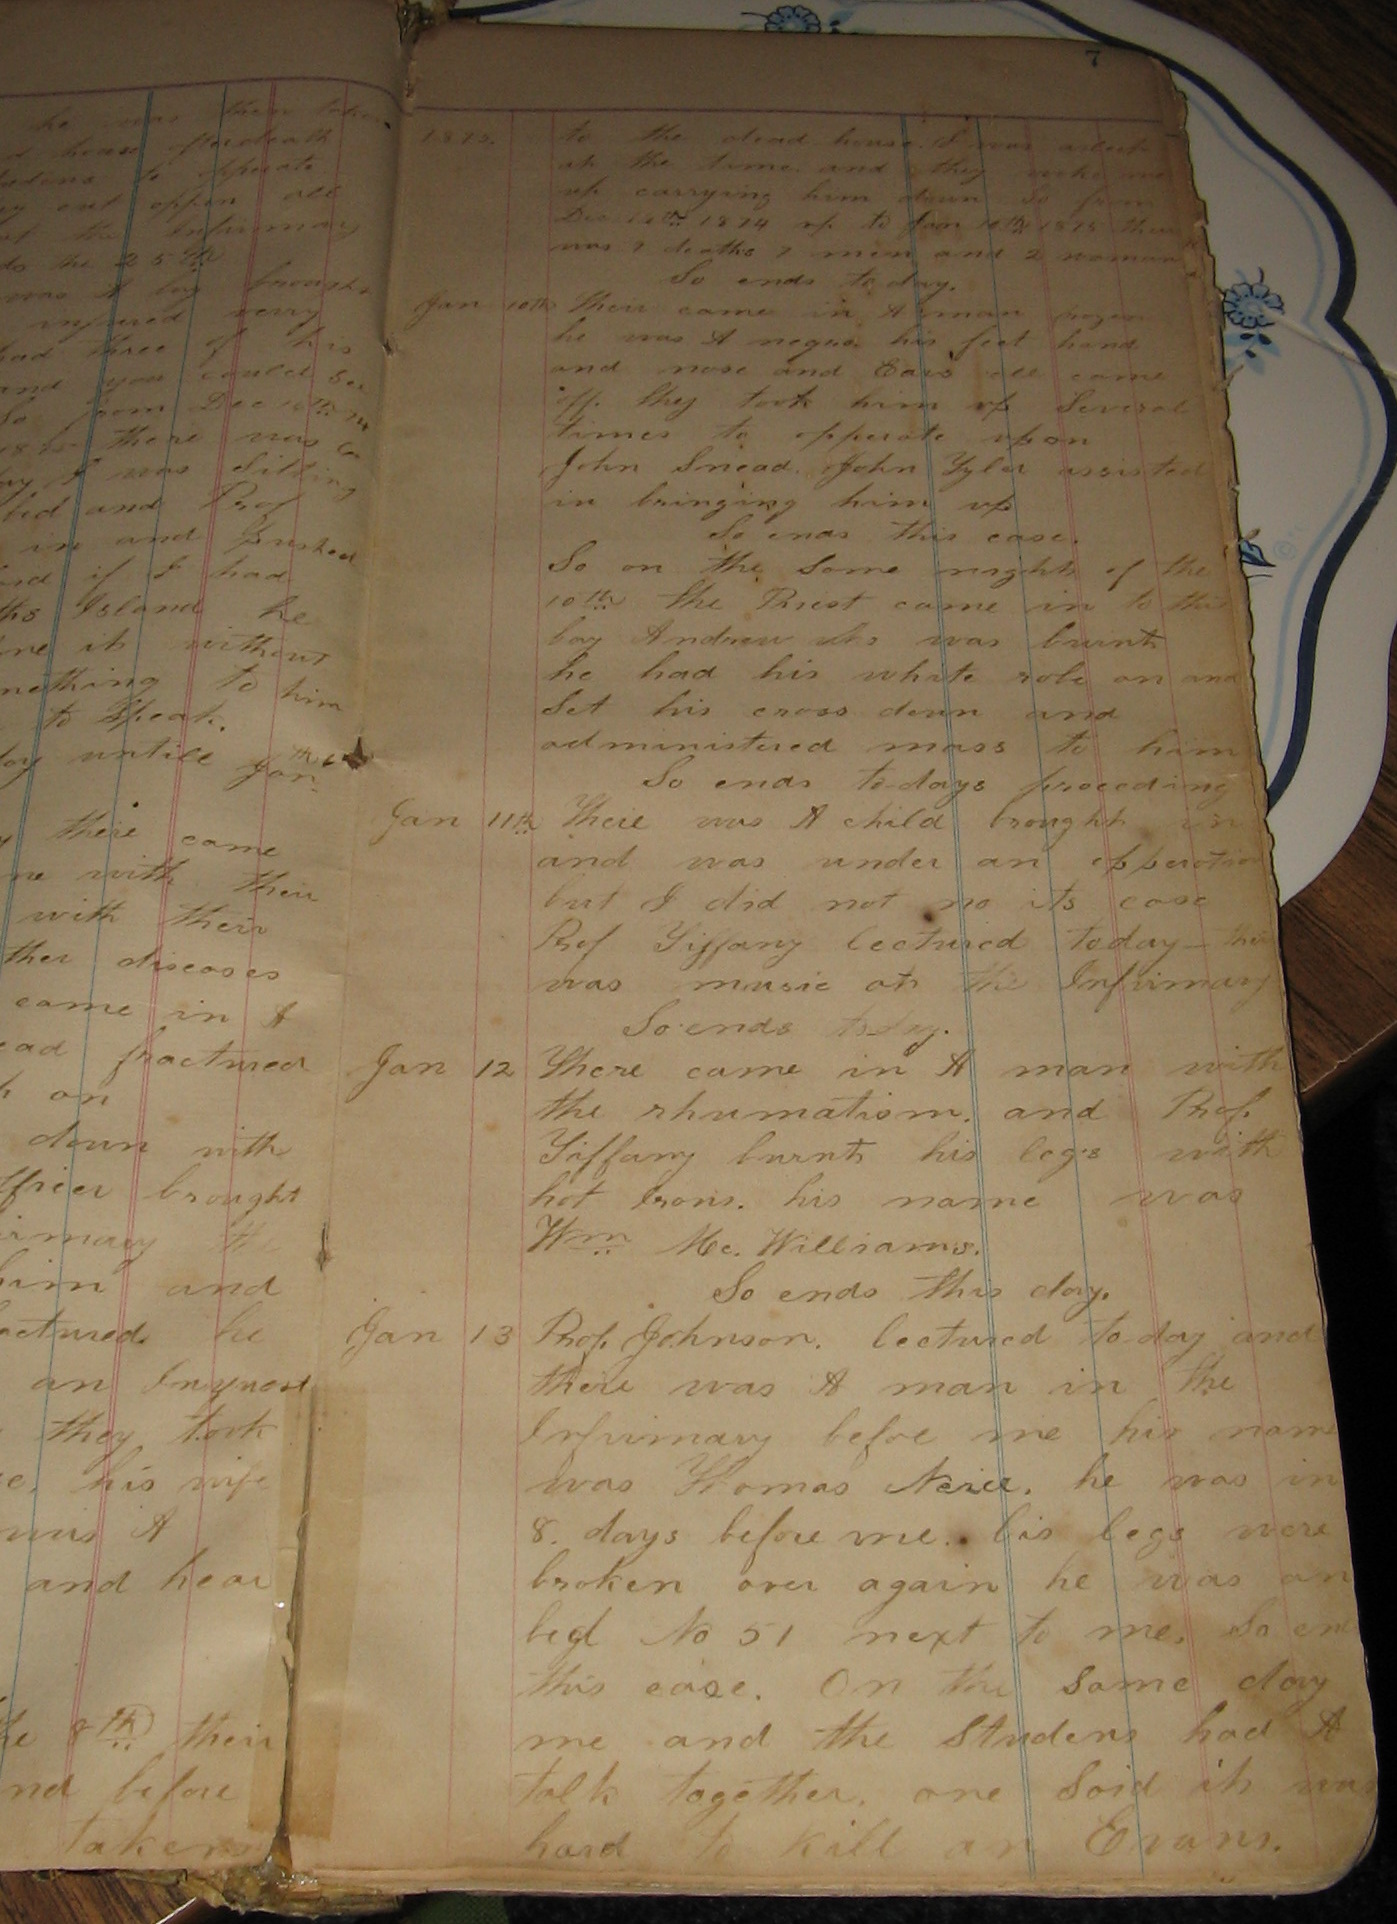 he was then taken
house
to opperate
cut oppen all
the Infirmary
the 25th
was A boy brought
injured verry
had three of his
and you could see
So from Dec
there was
I was Sitting
bed and Prof
in and
if I had
Island he
it without
to him
to Speak.
untill Jan
there came
with their
with their
diseases
came in A
fractured
on
down with
brought
him and
he
an Inquest
they took
his wife
A
and hear
8th their
before
taken
7
1875. to the dead house. I was asleep
at the time. and they woke me
up carrying him down So from
Dec 1874 up to Jan 10th 1875 there
was 9 deaths 7 men and 2 woman
So ends to day.
Jan 10th their came in A man
he was A negro his feet hand
and nose and Ears all came
off. they took him up Several
times to opperate upon
John Snead. John Tyler assisted
in bringing him up
So ends this case.
So on the Same night of the
10th the Priest came in to this
boy Andrew who was burnt
he had his white robe on and
Set his cross down and
administered mass to him
So ends to-days proceeding
Jan 11th There was A child brought in
and was under an opperation
but I did not no its case
Prof Tiffany lectured today—
was music at the Infirmary
So ends to day.
Jan 12 There came in A man with
the rhumatism. and Prof.
Tiffany burnt his legs with
hot Irons. his name was
Wm Mc. Williams.
So ends this day.
Jan 13 Prof. Johnson. lectured to day and
there was A man in the
Infirmary befoe me his name
was Thomas he was in
8. days before me. his legs were
broken over again he was on
bed No 51 next to me. So end
this case. On the Same day
me and the Studens had A
talk together. one Said it was
hard to kill an Evans.